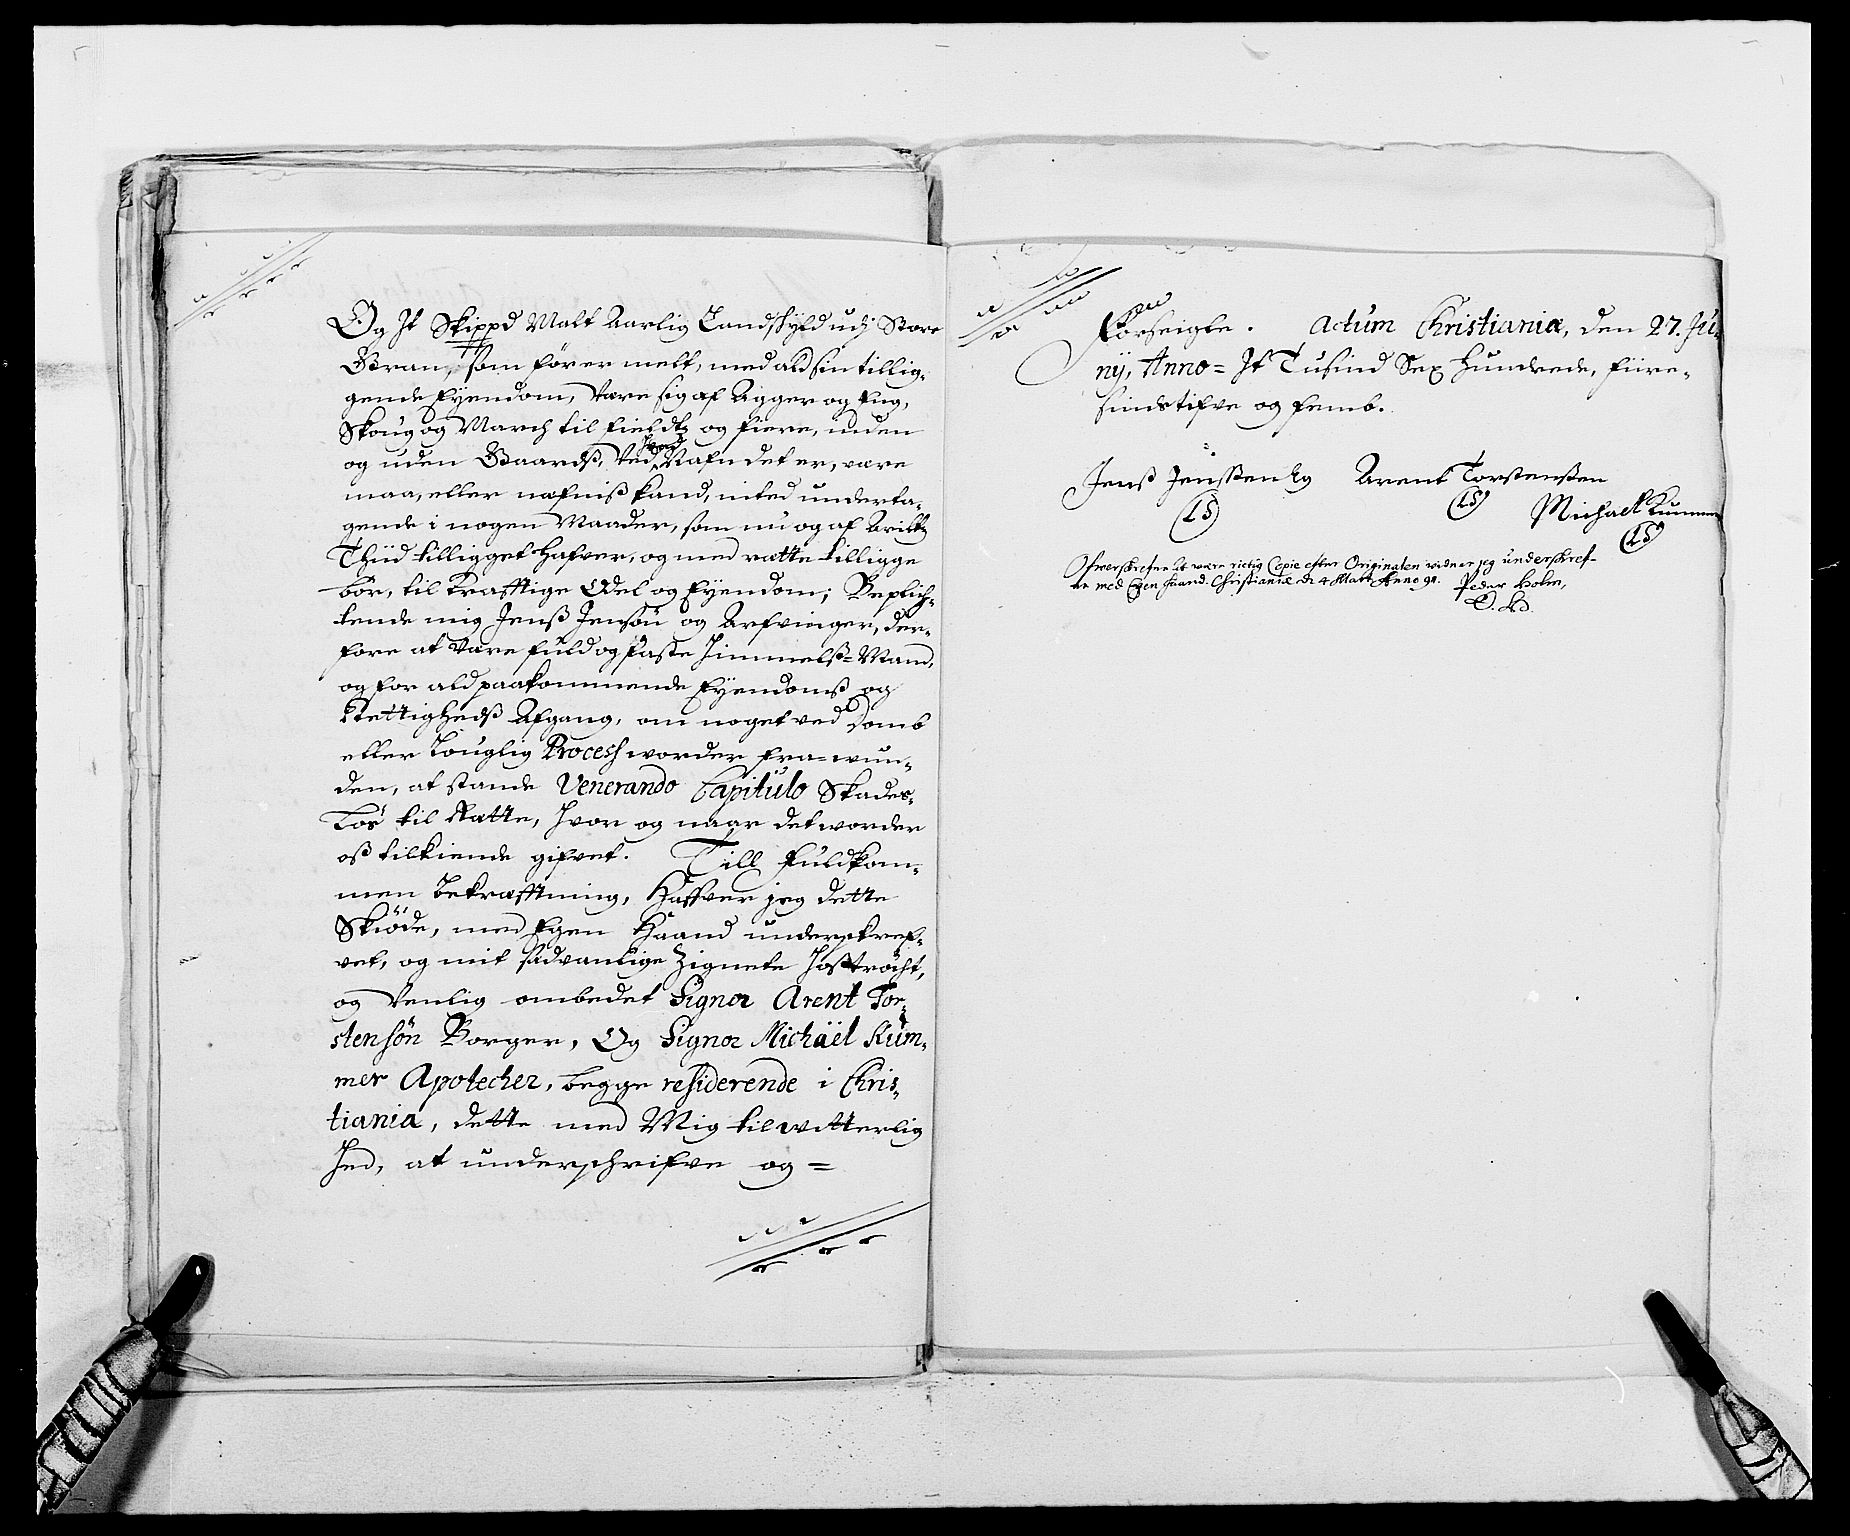 Og It Skippd Malt Aarlig Landskyld udj Store
Gran, som för er melt, med ald sin tillig-
gende Eyendom, være sig af Agger og Eng,
Skoug og March til fieldtz og fiere, inden
og uden Gaardß, ved hvad Nafn det er, være
maa, eller næfniß kand, inted underta-
gende i nogen Maader, som nu og af Arildtz
Thiid tilligget hafver, og med rætte tilligge
bör, til Krafftige Odel og Eyendom; Beplich-
tende mig Jenß Jensön og Arfvinger, der-
fore at være fuld og faste Himmelß-Mand,
og for ald paakommende Eyendomß og
Rettighedß Afgang, om noget ved Domb
eller Louglig Process worder fra-wun-
den, at stande Venerando Capitulo Skades-
Löß til Rætte, hvor og naar det worder
oß tilkiende gifvet. Till fuldkom-
men Bekræfftning, Haffver jeg dette
Skiöde, med Egen Haand underskref-
vet, og mit sædvanlige Zignete hoßtröcht,
og venlig ombedet Signor Arent Tor-
stensön Borger, Og Signor Michäel Küm-
mer Apotecher, begge residerende i Chris-
tiania, dette med Mig til witterlig
hed, at underschrifve og =
Forseigle. Actum Christianiæ, den 27. Jü-
nÿ, Anno = It Tusind Sex hundrede, fiire-
sindstifve og femb.
Jenß Jenssen Arent Torstenssen
LS LS Michael Kummer
LS
Ofverskrefne at være rictig Copie efter Originalen vidner jeg underskref-
ne med Egen haand. Christianiæ d. 4 Martÿ Anno 90. Peder Holm,